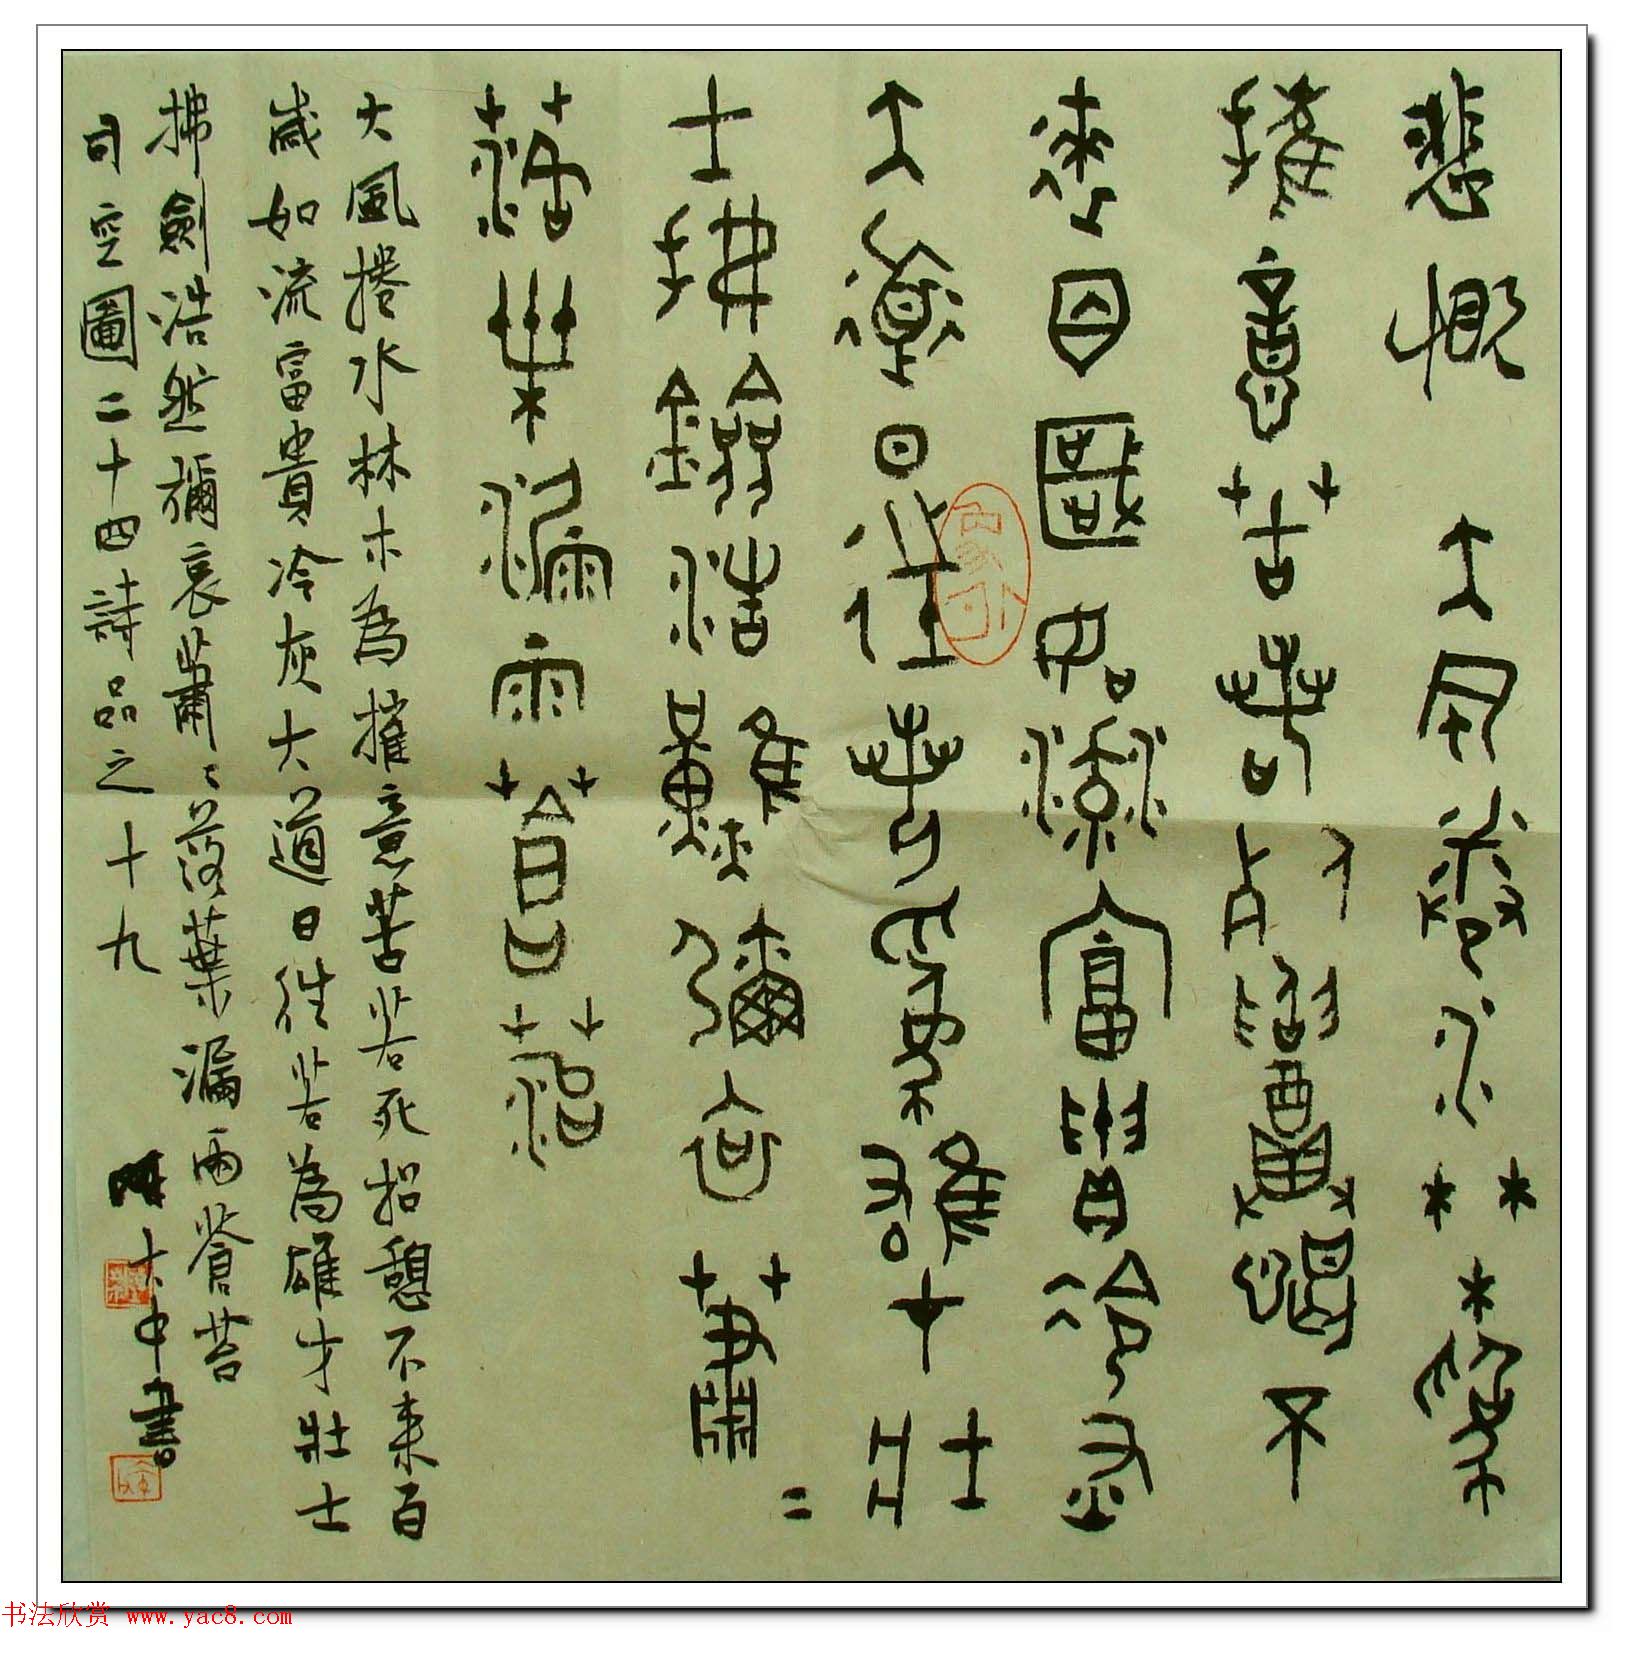 悲慨 大風捲水林木為
摧意苦若死招憩不
來百歲如流富貴冷灰
大道日往若為雄才壯
士拂劍浩然彌哀蕭〻
落葉漏雨蒼苔
大風捲水林木為摧意苦若死招憩不來百
歲如流富貴冷灰大道日往若為雄才壯士
拂劍浩然彌哀蕭〻落葉漏雨蒼苔
司空圖二十四詩品之十九
大中書
书法欣赏 www.yac8.com